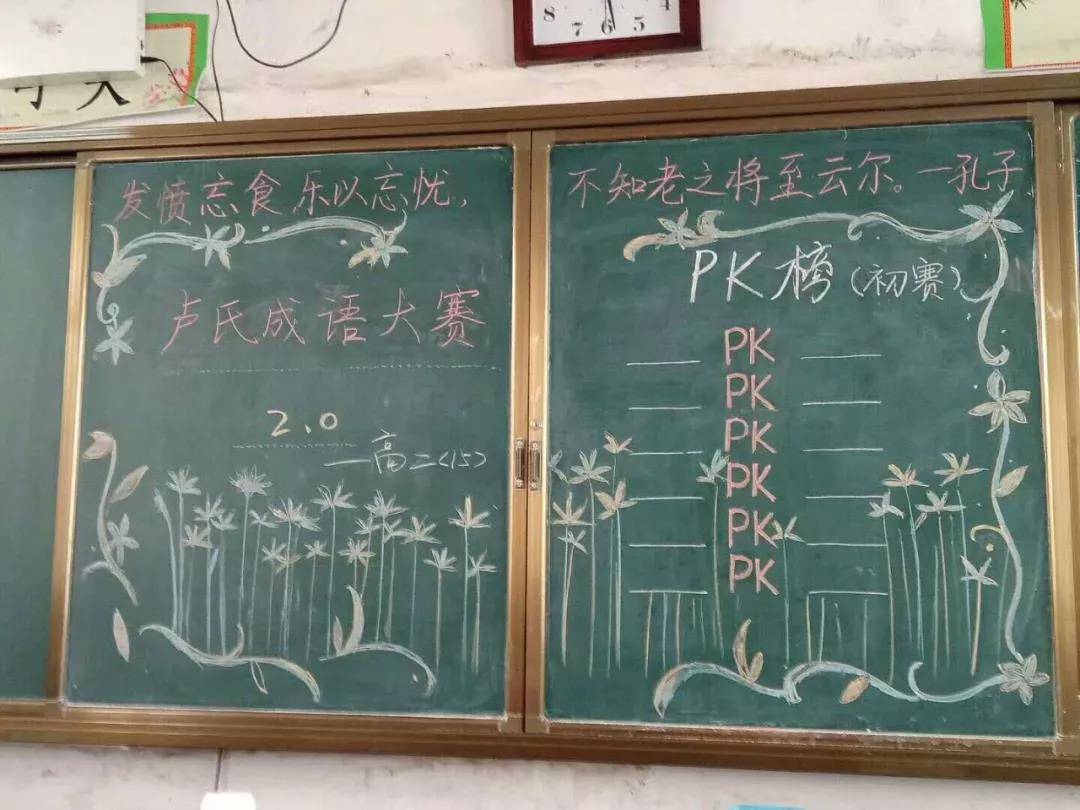 8 7 6 5 4
发愤忘食,乐以忘忧,
不知老之将至云尔。—孔子
卢氏成语大赛
2.0
—高二<15>
PK榜(初赛)
PK
PK
PK
PK
PK
PK